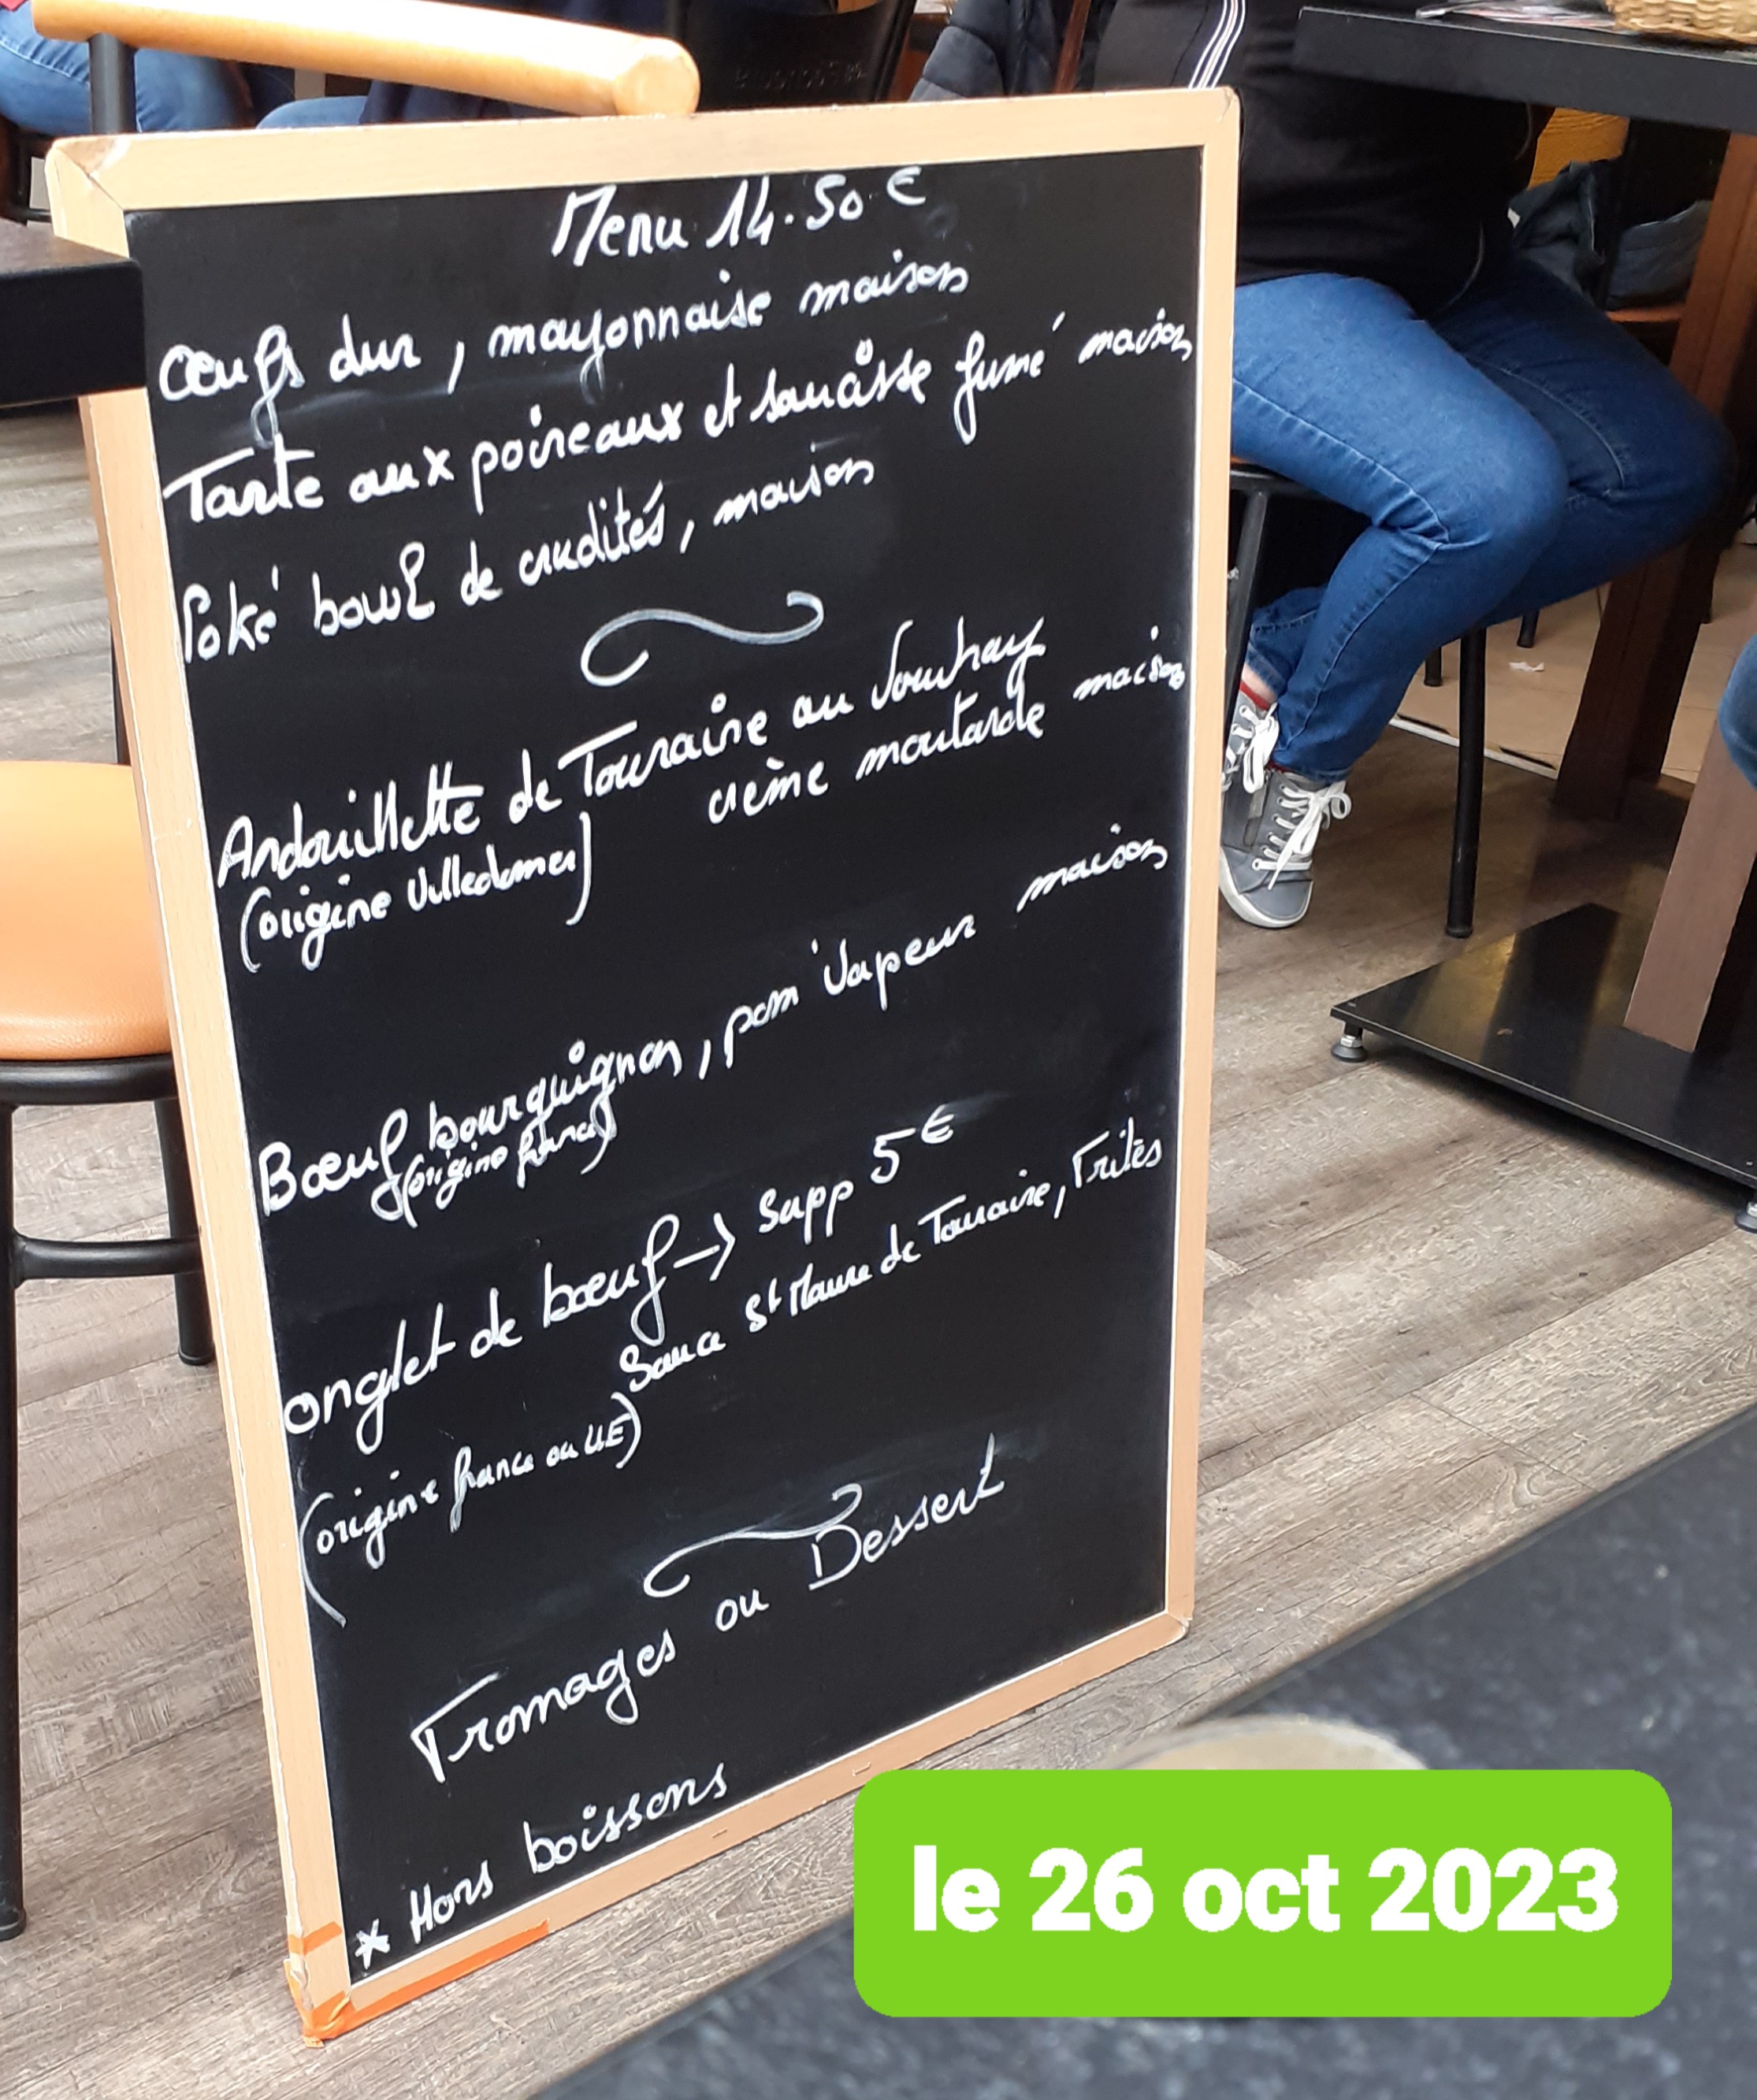 Menu 14.50 €
Oeufs dur, mayonnaise maison
Tarte aux poireaux et saucisse fumé maison
Poké bowl de crudités, maison
Andouillette de Touraine au Vouvray
crème moutarde maison
(origine Villedomer)
Bœuf bourguignon, pom'vapeur maison
(origine france)
onglet de bœuf → supp 5€
Sauce St Maure de Touraine, Frites
(origine france ou UE)
Fromages ou Dessert
* Hors boissons
le 26 oct 2023